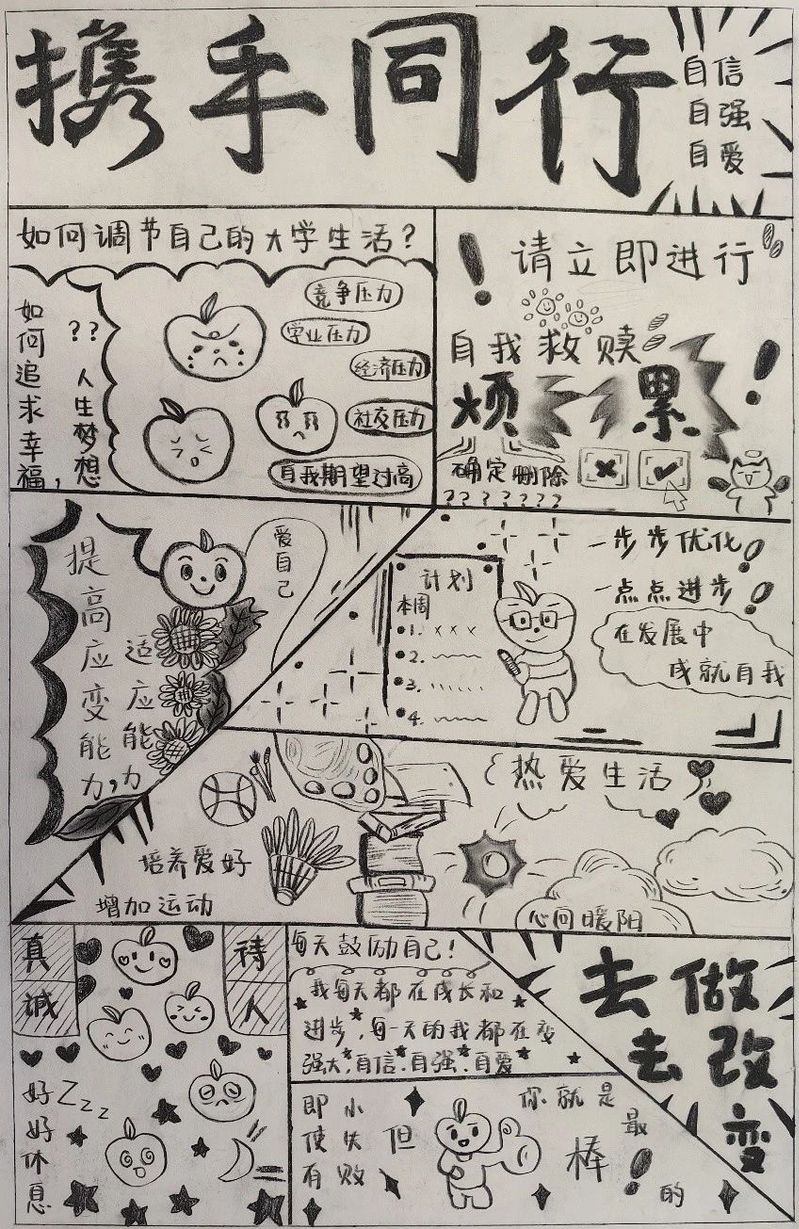 携手同行
自信
自强
自爱
如何调节自己的大学生活？
如何追求幸福，
？？人生梦想
竞争压力
学业压力
经济压力
社交压力
自我期望过高
！请立即进行
自我救赎
烦 累！
确定删除
？？？？？？？
提高应变能力，
适应能力
爱自己
计划
本周
1. × × ×
2.
3.
4.
一步步优化！
一点点进步！
在发展中
成就自我
热爱生活
培养爱好
增加运动
心向暖阳
真诚
待人
好好休息
Zzz
每天鼓励自己！
我每天都在成长和
进步，每一天的我都在变
强大，自信．自强．自爱
去做
去改变
即使有
小失败
但
你就是最棒的！